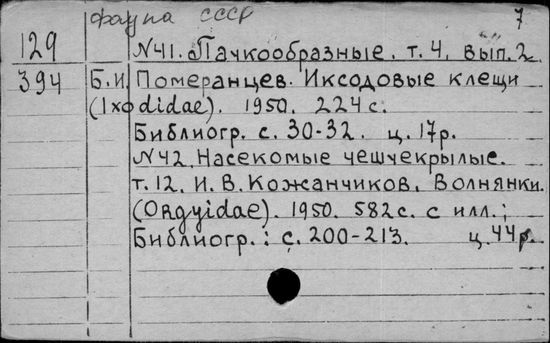 фауна СССР 7
129 №41. Пачкообразные. т. 4, вып. 2.
394 Б.И. Померанцев. Иксодовые клещи
(Ixodidae). 1950. 224 с.
Библиогр. с. 30-32. ц. 17р.
№42 Насекомые чешчекрылые.
т. 12. И. В. Кожанчиков. Волнянки.
(Orgyidae). 1950. 582 с. с илл.;
Библиогр.: с. 200-213. ц. 44р.